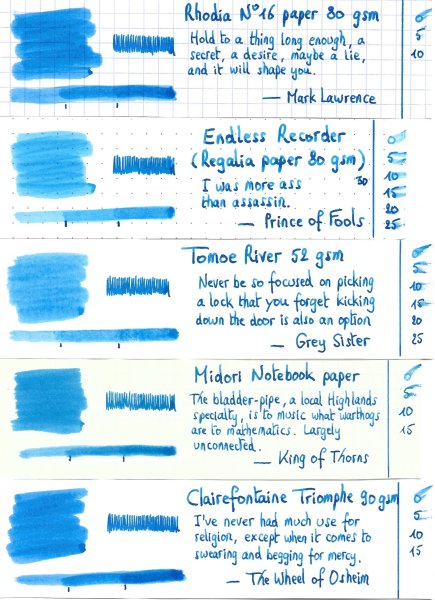 Rhodia N°16 paper 80 gsm
Hold to a thing long enough, a
secret, a desire, maybe a lie,
and it will shape you.
— Mark Lawrence
0
5
10
Endless Recorder
(Regalia paper 80 gsm)
I was more ass
than assassin.
— Prince of Fools
0
5
10
30
15
20
25
Tomoe River 52 gsm
Never be so focused on picking
a lock that you forget kicking
down the door is also an option
— Grey Sister
0
5
10
15
20
25
Midori Notebook paper
The bladder-pipe, a local Highlands
specialty, is to music what warthogs
are to mathematics. Largely
unconnected.
— King of Thorns
0
5
10
15
Clairefontaine Triomphe 90gsm
I've never had much use for
religion, except when it comes to
swearing and begging for mercy.
— The Wheel of Osheim
0
5
10
15